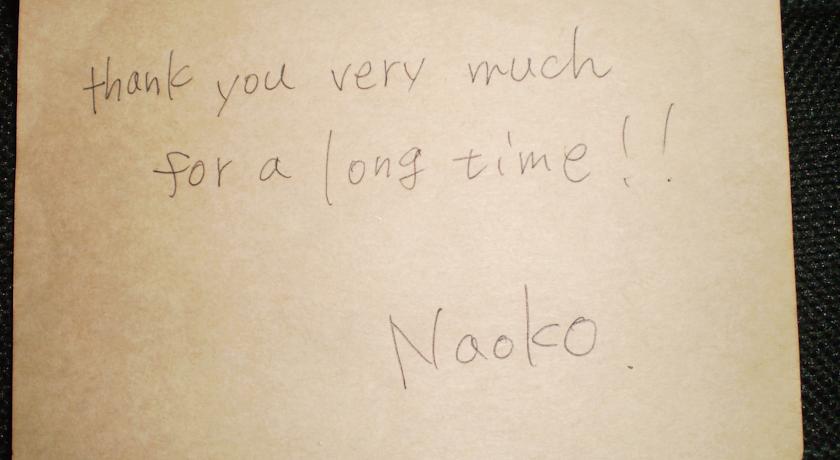 thank you very much
for a long time!!
Naoko.